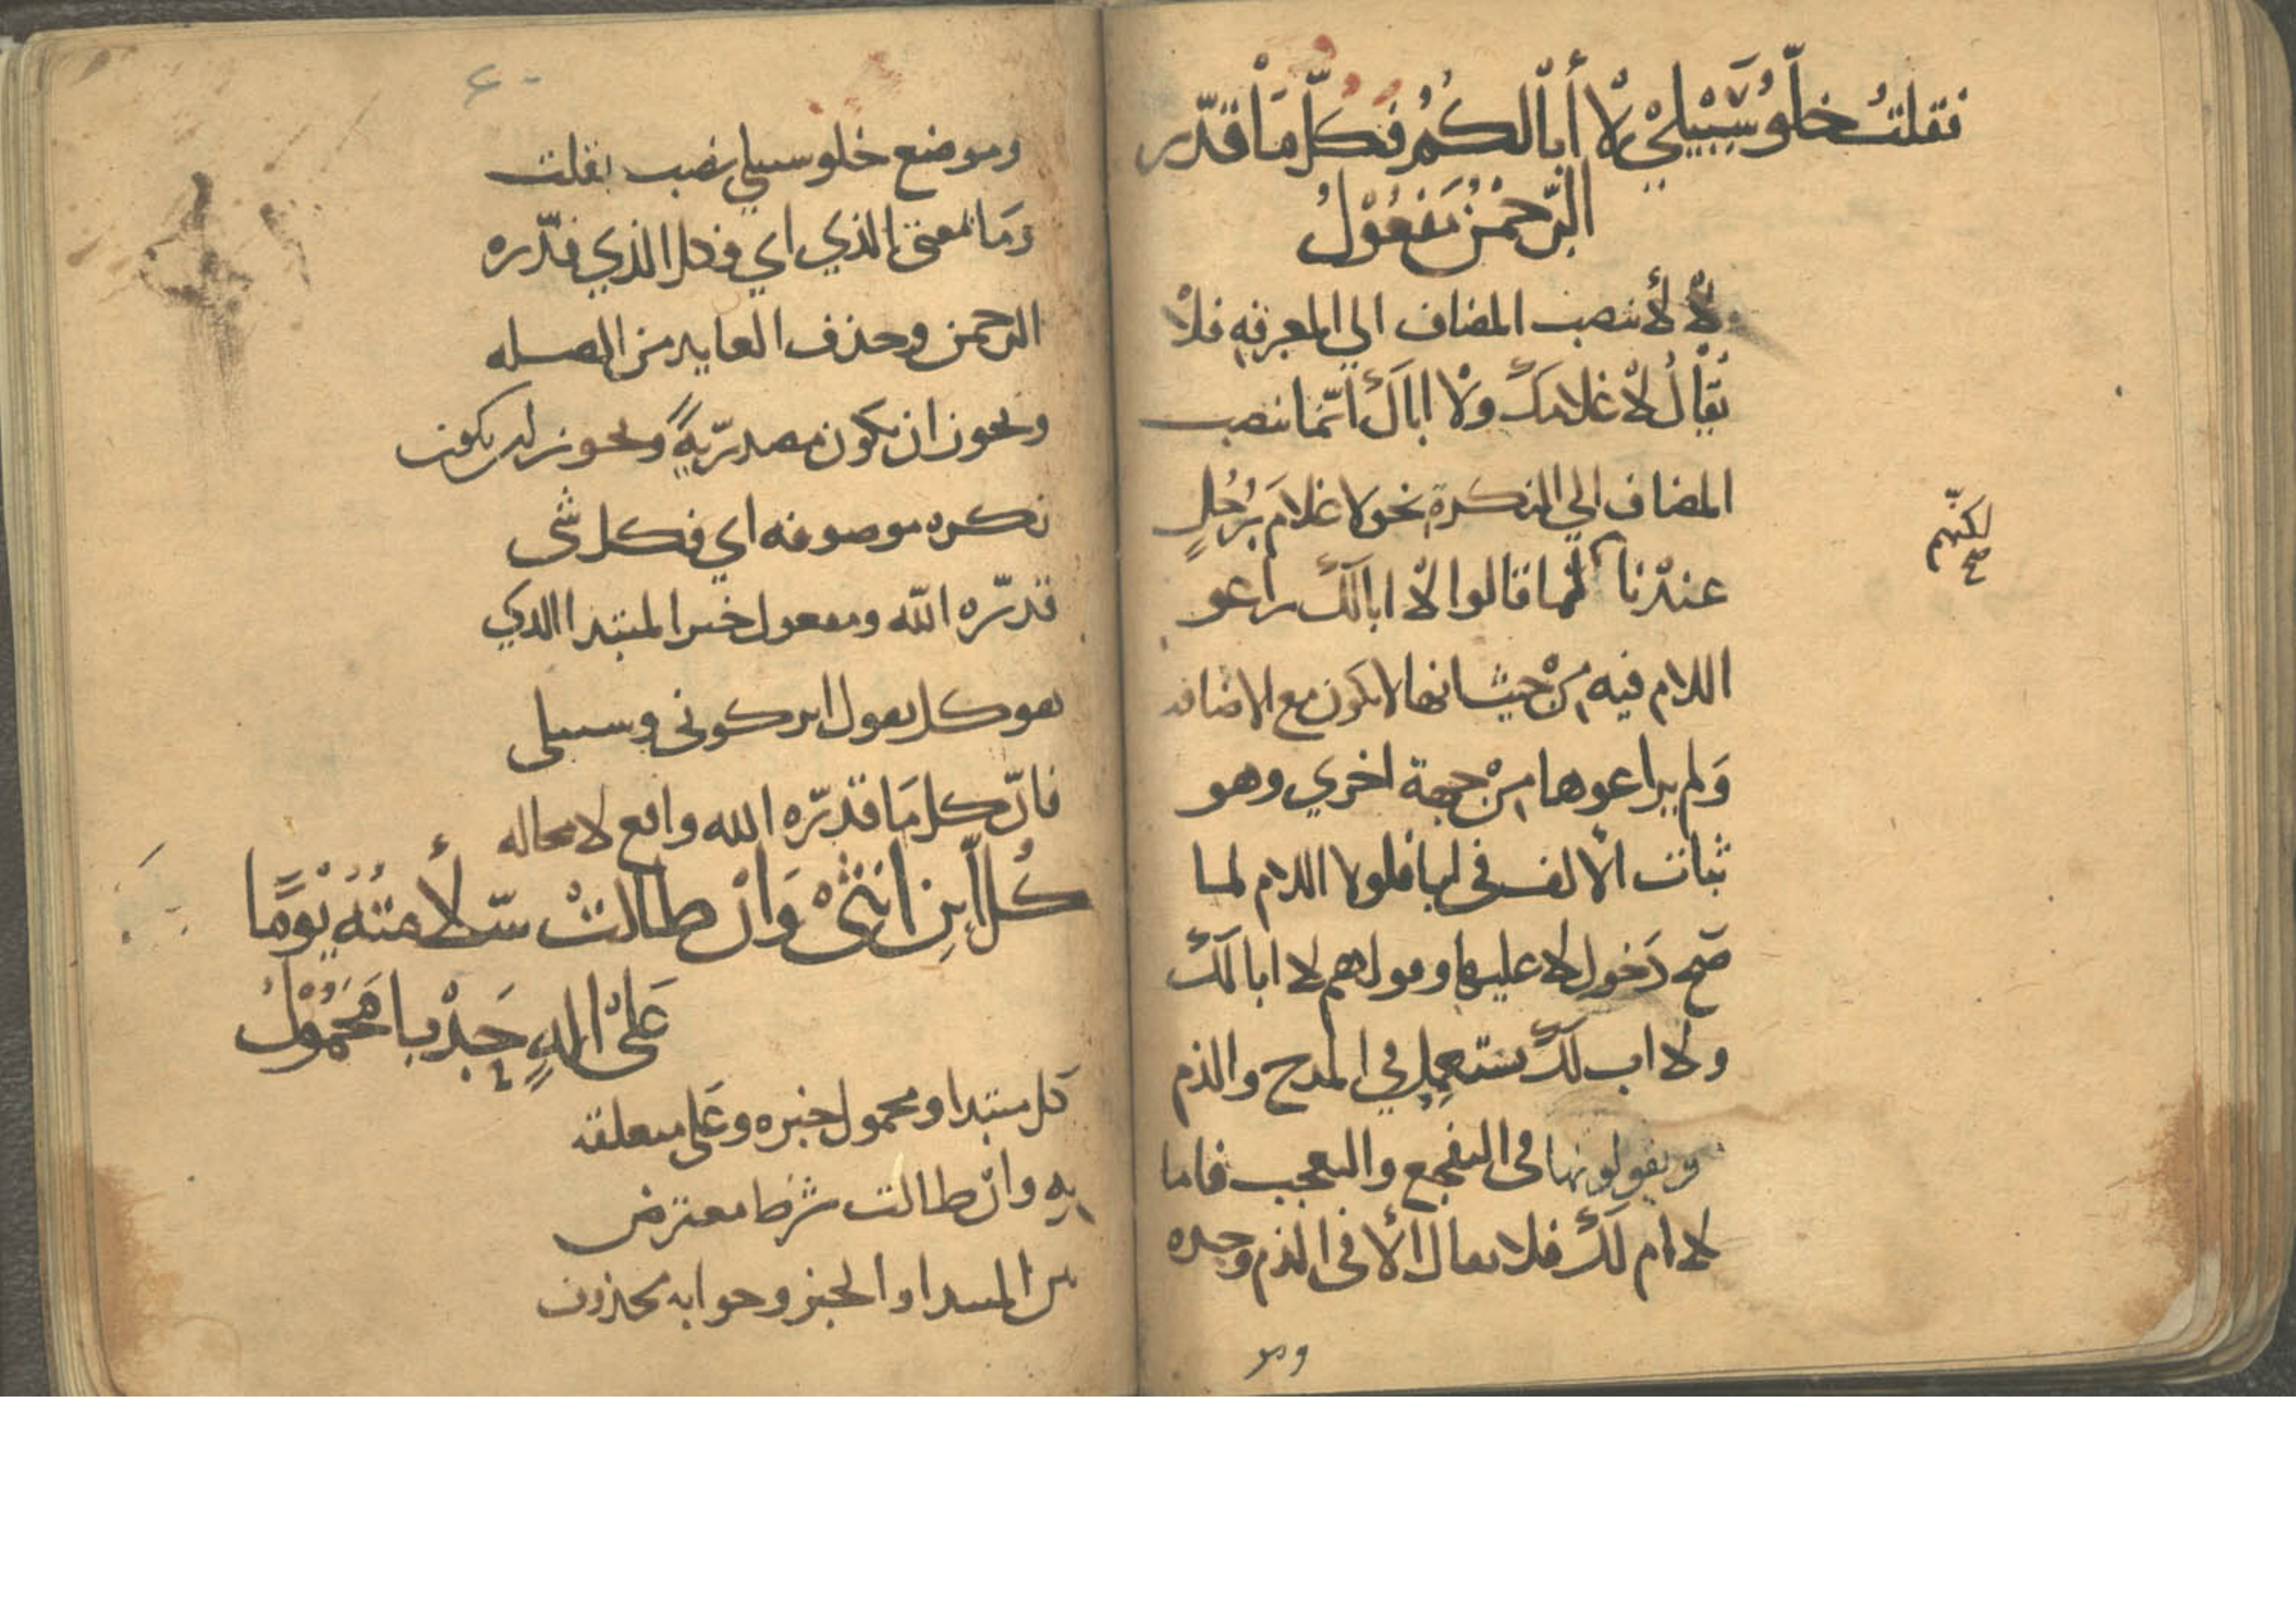 فقلتُ خلّوُ سَبِيْلِيْ لْا أبًا لكُمُ فكلّ مَاْ قدّر
الرّحْمٰن مَفعُوْلُ
لْا لأ تنصب المضاف الي المعرفه فلا
يُقْالُ لْا غلامَكَ ولْا اباكَ انّما تنصب
المضاف الي النكرة نحو لا غلامَ رَجُلٍ
عندْنا لمّا قالوا لْا ابا لكَ راعو
لكنّهم
صح
اللام فيه مِنْ حيث انها لا تكون مع الاضافه
وَلم يراعوها مِنْ جهة اخري وهو
ثبات الألف في ابا فلولا اللام لما
صَح دَخول لا عليها وقولهم لا ابا لكَ
ولا اب لكَ يستعمل في المدح والذم
ويقولونها في التفجع والتعجب فاما
لا ام لكَ فلا يقال الأ في الذم وحده
ومو
٤٠
وموضع خلو سبيلي نصب بقلت
وَما بمعنى الذي اي فكل الذي قدّره
الرحمن وحذف العايد من الصله
ويجوز ان تكون مصدريّةً ويجوز ان يكون
نكره موصوفه اي فكل شى
قدّره اللّه ومفعول خبر المبتدا الدي
هو كل يقول اتركوني وسبيلى
فانّ كل مَا قدّره الله واقع لا محاله
كُلّ ابْنِ انثىْ وَانْ طالتْ سَلأمتُهُ يَوْمًا
عَلىْ الةٍ حَدْبا مَحَمُوْلُ
كل مبتدا ومحمول خبره وعَلى متعلقه
به وانْ طالت شرط معترض
بين المبتدا والخبر وجوابه محذوف